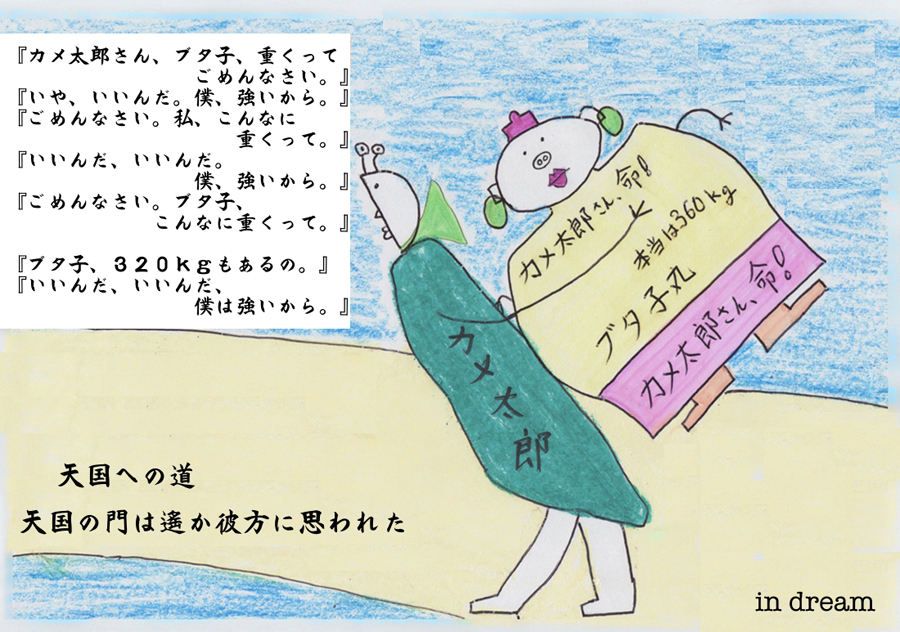 『カメ太郎さん、ブタ子、重くって
ごめんなさい。』
『いや、いいんだ。僕、強いから。』
『ごめんなさい。私、こんなに
重くって。』
『いいんだ、いいんだ。
僕、強いから。』
『ごめんなさい。ブタ子、
こんなに重くって。』
『ブタ子、３２０ｋｇもあるの。』
『いいんだ、いいんだ、
僕は強いから。』
カメ太郎さん、命!
本当は360kg
ブタ子丸
カメ太郎さん、命!
カメ太郎
天国への道
天国の門は遙か彼方に思われた
in dream